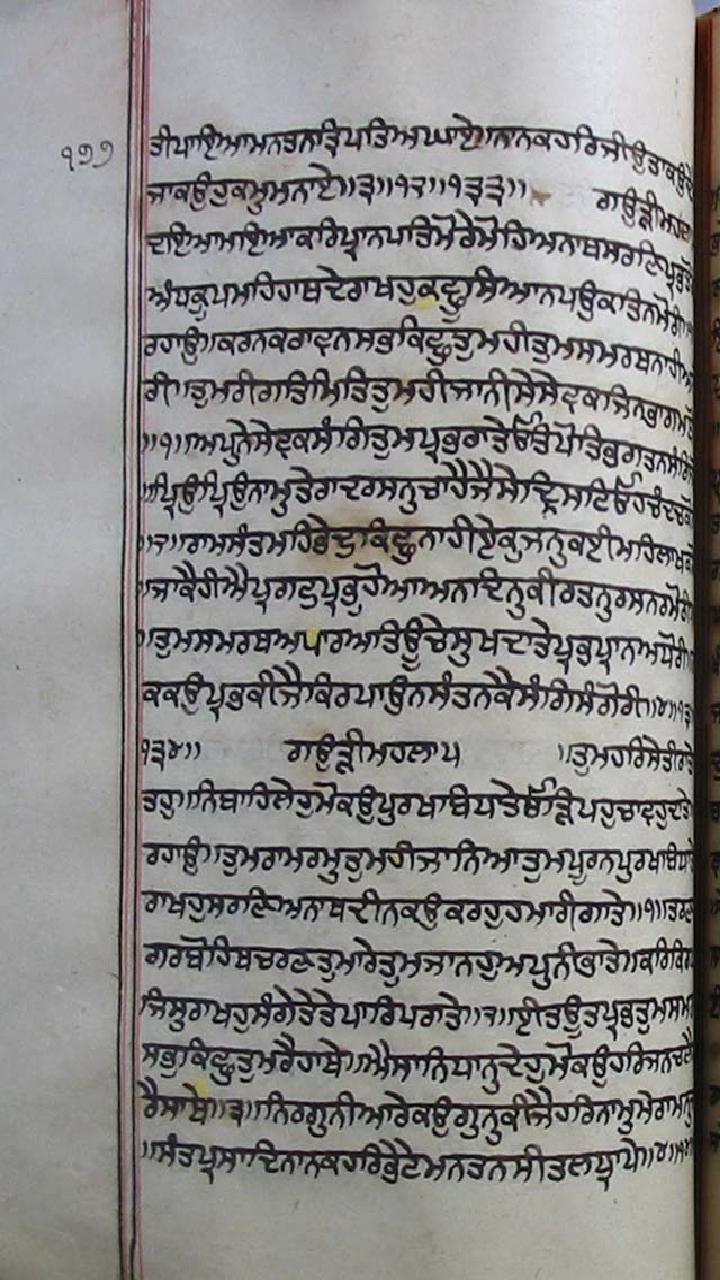 ੧੭੭
ਤੀਪਾਇਆਮਨਤਨਤ੍ਰਿਪਤਿਅਘਾਏ॥ਨਾਨਕਹਰਿਜੀਉਤਾਕਉਦੇ
ਜਾਕਉਹੁਕਮੁਮਨਾਏ॥੩॥੧੨॥੧੩੩॥ ਗਉੜੀਮਹਲਾ
ਦਇਆਮਾਇਆਕਰਿਪ੍ਰਾਨਪਤਿਮੋਰੇਮੋਹਿਅਨਾਥਸਰਣਿਪ੍ਰਭਤੋ
ਅੰਧਕੂਪਮਹਿਹਾਥਦੇਰਾਖਹੁਕਛੂਸਿਆਨਪਉਕਤਿਨਮੋਰੀ॥
ਰਹਾਉ॥ਕਰਨਕਰਾਵਨਸਭਕਿਛੁਤੁਮਹੀਤੁਮਸਮਰਥਨਾਹੀਅ
ਰੀ॥ਤੁਮਰੀਗਤਿਮਿਤਿਤੁਮਹੀਜਾਨੀਸੇਸੇਵਕਜਿਨਭਾਗਮਥੋ
॥੧॥ਅਪੁਨੇਸੇਵਕਸੰਗਿਤੁਮਪ੍ਰਭਰਾਤੇਓਤਿਪੋਤਿਭਗਤਨਸੰਗਿ
॥ਪ੍ਰਿਉਪ੍ਰਿਉਨਾਮੁਤੇਰਾਦਰਸਨੁਚਾਹੈਜੈਸੇਦ੍ਰਿਸਟਿਓਹਚੰਦਚਕੋ
॥੨॥ਰਾਮਸੰਤਮਹਿਭੇਦੁਕਿਛੁਨਾਹੀਏਕੁਜਨੁਕਈਮਹਿਲਾਖ
॥ਜਾਕੈਹੀਐਪ੍ਰਗਟੁਪ੍ਰਭੁਹੋਆਅਨਦਿਨੁਕੀਰਤਨੁਰਸਨਰਮੋਰੀ
॥ਤੁਮਸਮਰਥਅਪਾਰਅਤਿਊਚੇਸੁਖਦਾਤੇਪ੍ਰਭਪ੍ਰਾਨਅਧੋਰੀ॥
ਕਕਉਪ੍ਰਭਕੀਜੈਕਿਰਪਾਉਨਸੰਤਨਕੈਸੰਗਿਸੰਗੋਰੀ॥੪॥੧੩
੧੩੪॥ ਗਉੜੀਮਹਲਾ੫ ॥ਤੁਮਹਰਿਸੇਤੀਰਾਤੇ
ਤਹੁ॥ਨਿਬਾਹਿਲੇਹੁਮੋਕਉਪੁਰਖਬਿਧਾਤੇਓੜਿਪਹੁਚਾਵਹੁਦਾਤੇ
ਰਹਾਉ॥ਤੁਮਰਾਮਰਮੁਤੁਮਹੀਜਾਨਿਆਤੁਮਪੂਰਨਪੁਰਖਬਿਧਾਤੇ
ਰਾਖਹੁਸਰਣਿਅਨਾਥਦੀਨਕਉਕਰਹੁਹਮਾਰੀਗਾਤੇ॥੧॥ਤਰਣ
ਗਰਬੋਹਿਥਚਰਣਤੁਮਾਰੇਤੁਮਜਾਨਹੁਅਪੁਨੀਭਾਤੇ॥ਕਰਿਕਿਰ
ਜਿਸੁਰਾਖਹੁਸੰਗੇਤੇਤੇਪਾਰਿਪਰਾਤੇ॥੨॥ਈਤਊਤਪ੍ਰਭਤੁਮਸਮ
ਸਭੁਕਿਛੁਤੁਮਰੈਹਾਥੇ॥ਐਸਾਨਿਧਾਨੁਦੇਹੁਮੋਕਉਹਰਿਜਨਚਲੈ
ਰੈਸਾਥੇ॥੩॥ਨਿਰਗੁਨੀਆਰੇਕਉਗੁਨੁਕੀਜੈਹਰਿਨਾਮੁਮੇਰਾਮਨੁ
॥ਸੰਤਪ੍ਰਸਾਦਿਨਾਨਕਹਰਿਭੇਟੇਮਨਤਨਸੀਤਲਧ੍ਰਾਪੇ॥੪॥੧੪